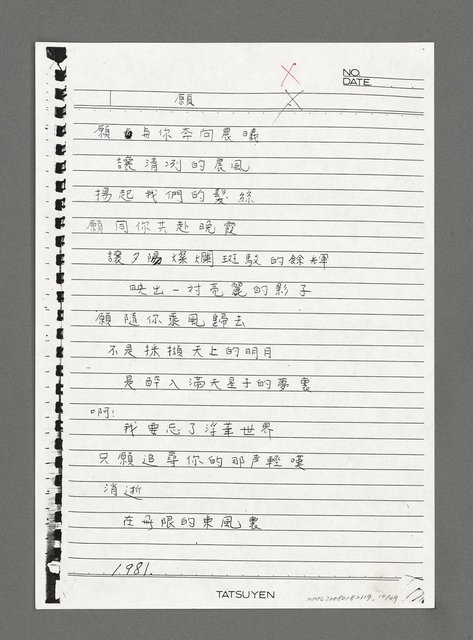 NO.
DATE
願
願与你奔向晨曦
讓清冽的晨風
揚起我們的髮絲
願同你共赴晚霞
讓夕陽燦斕斑駁的餘輝
映出一对亮麗的影子
願隨你乘風歸去
不是採擷天上的明月
是醉入滿天星子的夢裏
啊!
我要忘了浮華世界
只願追尋你的那声輕嘆
消逝
在無限的東風裏
1981.
TATSUYEN